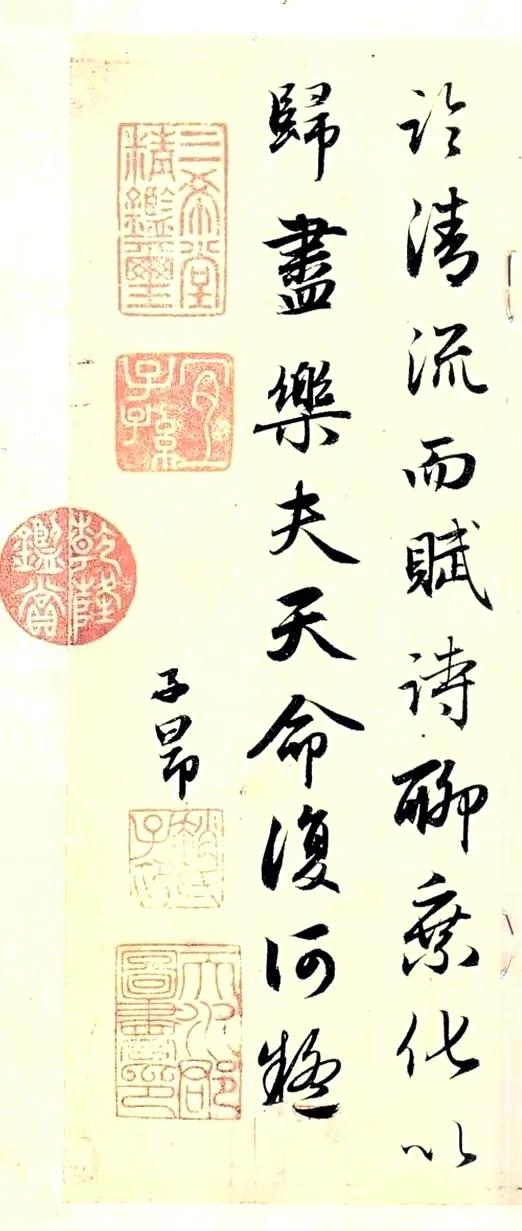 臨清流而賦詩聊乘化以
歸盡樂夫天命復何疑
子昂
三希堂精鑑璽
宜子孫
乾隆鑑賞
趙氏子昂
天水郡圖書印